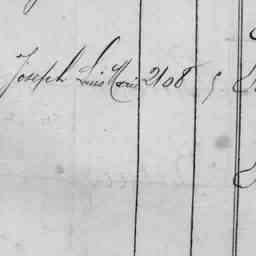 Joseph Luis Maria 2108